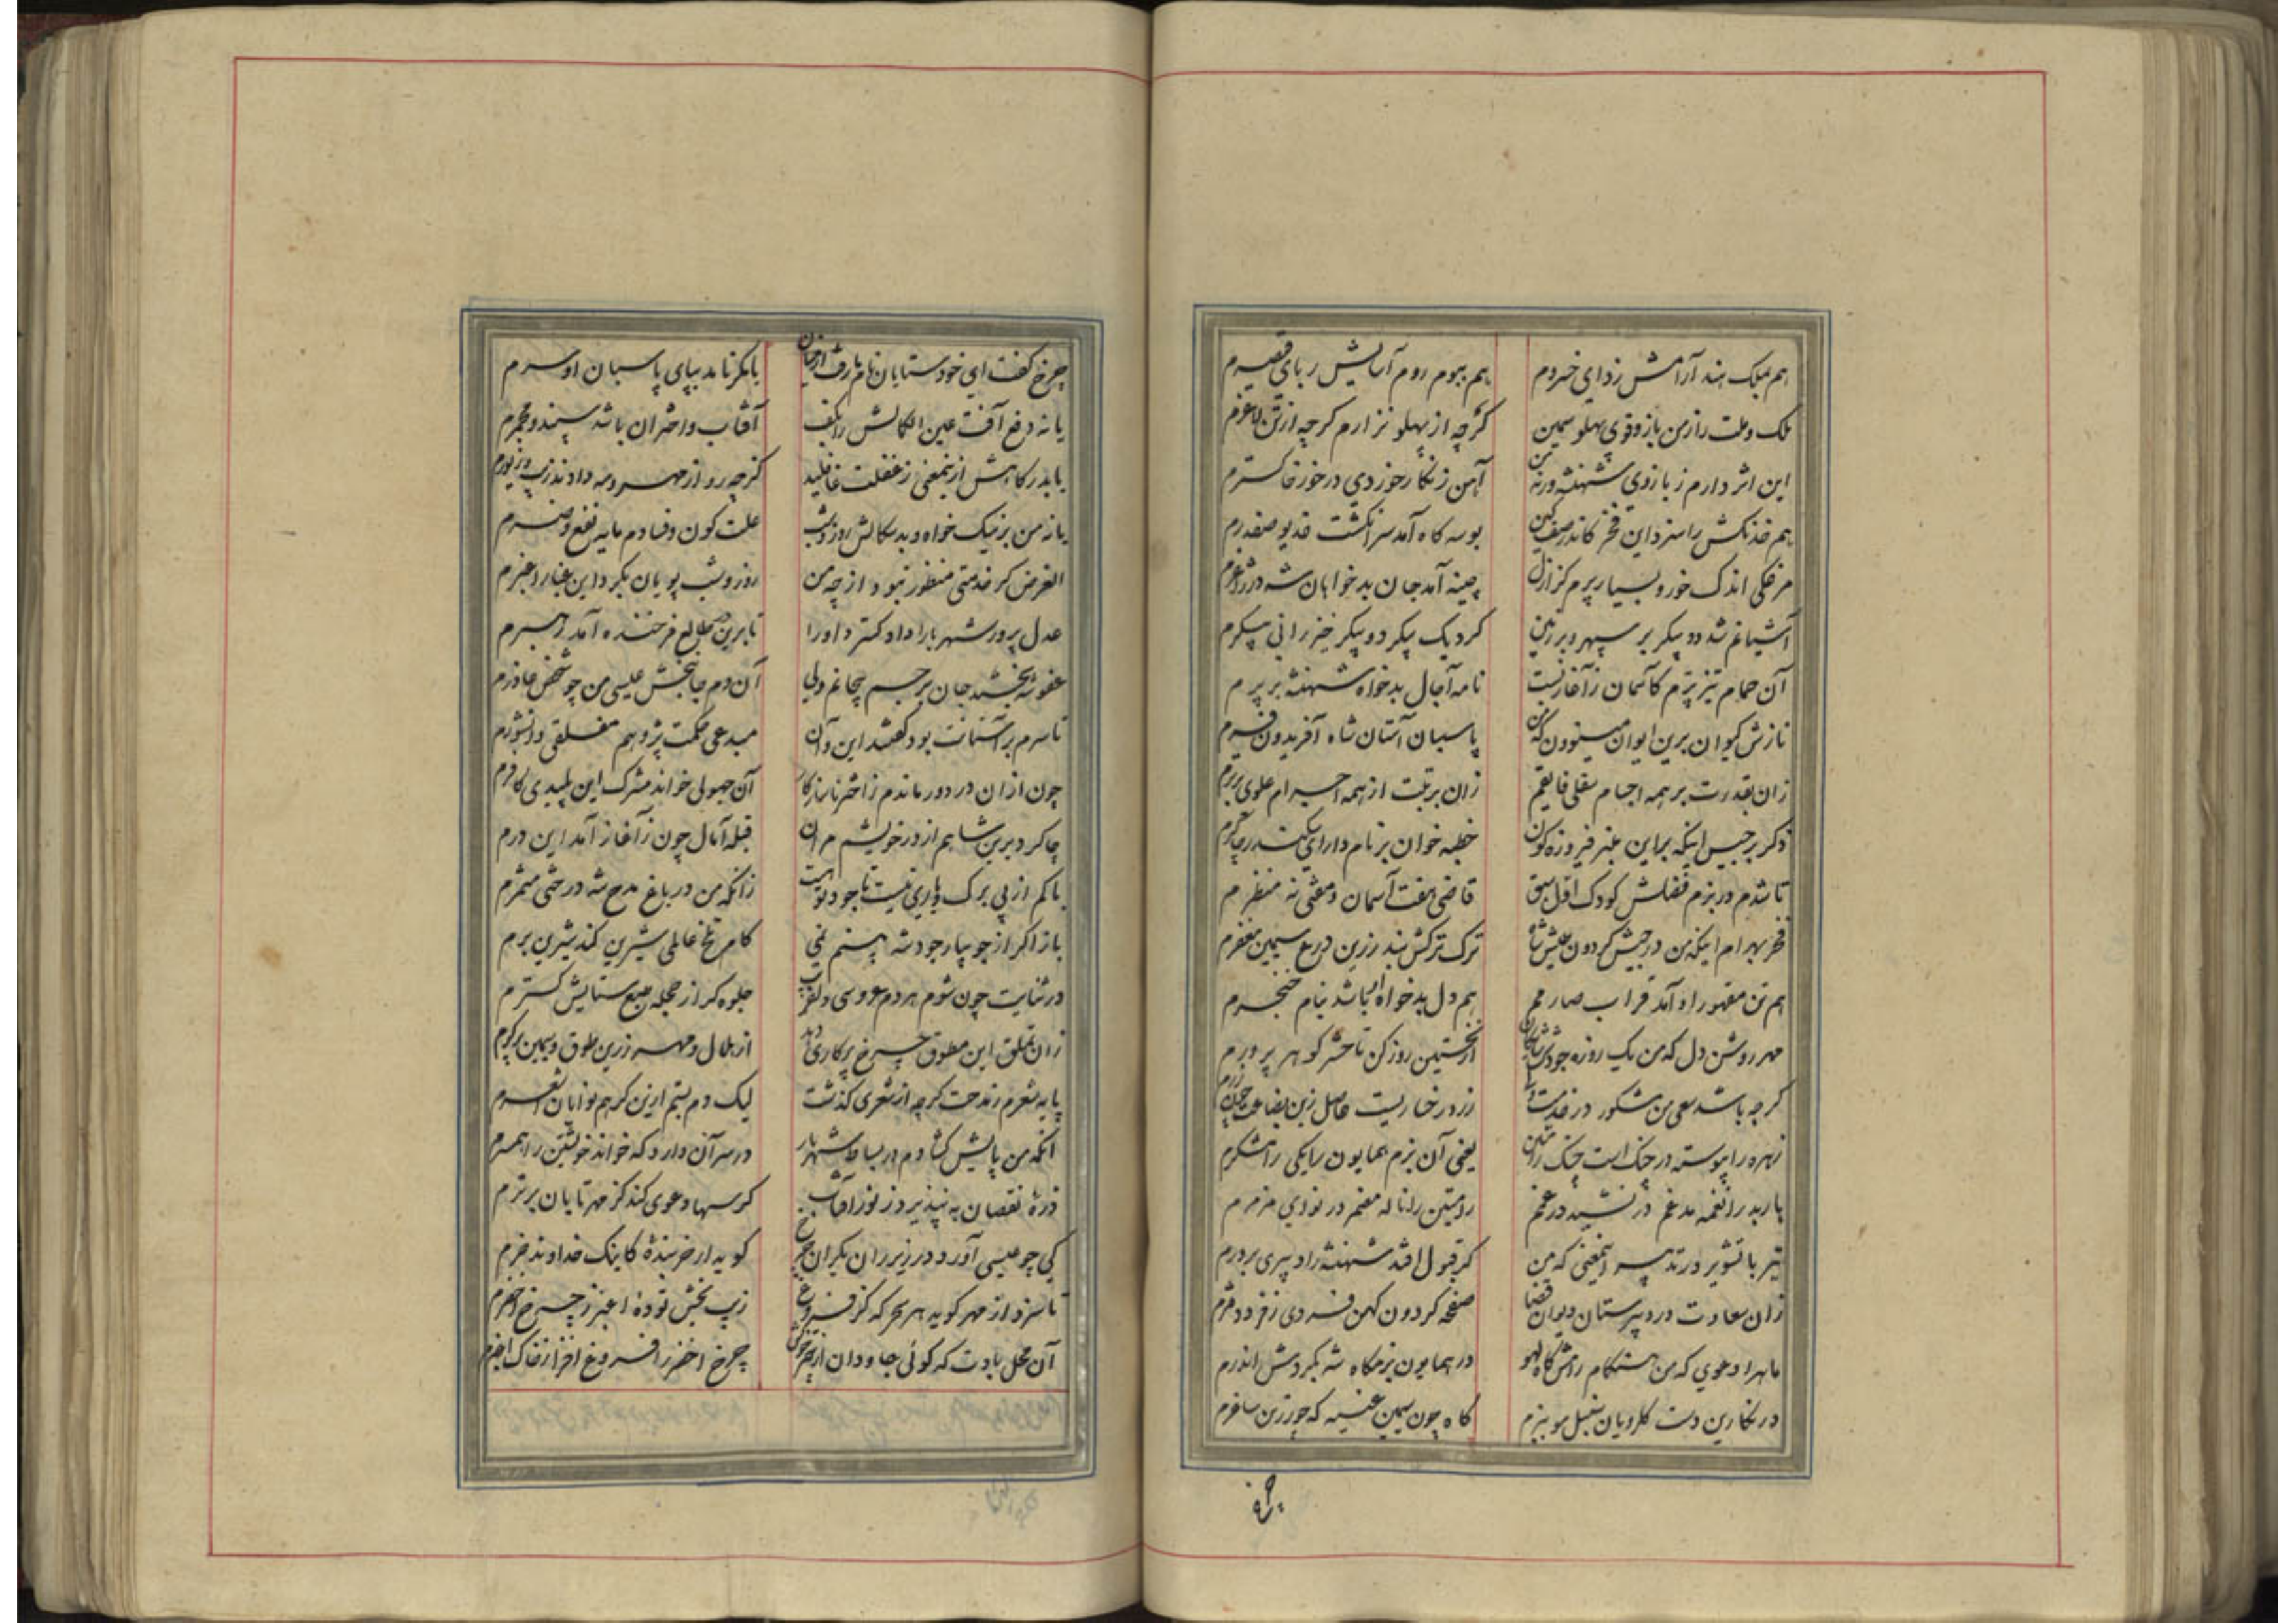 هم بملک هند آرامش زدای خسروم
هم ببوم روم آسایش ربای قیصرم
ملک و ملت را ز من بازو قوی پهلو سمین
گرچه از پهلو نزارم گرچه از تن لاغرم
این اثر دارم ز بازوی شهنشه ورنه من
آهن زنگار خوردی در خور خاکسترم
هم خدنگش را سزد این فخر کاندر صف کین
بوسه گاه آمد سرانگشت خدیو صفدرم
مرغکی اندک خور و بسیار پرم کز ازل
چینه آمد جان بدخواهان شه در ژاغرم
آشیانم شد دو پیکر بر سپهر و بر زمین
کرد یک پیکر دو پیکر خیزرانی پیکرم
آن حمام تیز پرم کآسمان ز آغاز بست
نامه آجال بدخواه شهنشه بر پرم
نازش کیوان برین ایوان مینوون که من
پاسبان آستان شاه آفریدون فرم
زان بقدرت بر همه اجسام سفلی فایقم
زان برتبت از همه اجرام علوی برترم
ذکر برجیس اینکه بر این منبر فیروزه گون
خطبه خوان بر نام دارای سکندر چاکرم
تا شدم در بزم فضلش کودک اول سبق
قاضی هفت آسمان و مفتی نه منظرم
فخر بهرام اینکه من در جیش گردون عیش شاه
ترک ترکش بند زرین درع سیمین مغفرم
هم تن مقهور او آمد قراب صارمم
هم دل بدخواه او باشد نیام خنجرم
مهر روشن دل که من یک روزه جودش را
از نخستین روز کن تا حشر گوهر پرورم
گرچه باشد سعی من مشکور در خدمت ولی
زرد رخساریست حاصل زین بضاعت چون زرم
زهره را پیوسته در چنگ است چنگ رامتین
یعنی آن بزم همایون را یکی رامشگرم
باربد را نغمه مدغم در نشید درغمم
رامتین را ناله مضمر در نوای مزمرم
تیر با تشویر در تدبیر اینمعنی که من
گر قبول افتد شهنشه را دبیری بر درم
زان سعادت در دبیرستان دیوان قضا
صفحه گردون کهن فردی ز فر دفترم
ماه را دعوی که من هنگام رامش گاه لهو
در همایون بزمگاه شه بگردش اندرم
در نگارین دست گلرویان سنبل مو ببزم
گاه چون سیمین غنینه که چو زرین ساغرم
چرخ
چرخ گفت ای خودستایان نام بارفت از میان
بانگر تا مد بپای پاسبان او سرم
یا نه دفع آفت عین الکمالش را بکف
آفتاب و اختران باشد سپند و مجمرم
باید رکابش ازینمعنی ز غفلت غافلید
گرچه رو از مهر و مه دادند زیب و زیورم
یا نه من بر نیک خواه و بدسگالش روز و شب
علت کون و فسادم مایه نفع و ضرم
الغرض گر خدمتی منظور نبود از چه من
روز و شب پویان بگرد این غبار اغبرم
عدل پرور شهریارا دادگستر داورا
تا برین مطلع فرخنده آمد رهبرم
عفو شه بخشد جان بر جسم بیجانم ولی
آن دم جانبخش عیسی من چو شخص عاذرم
تا سرم بر آستانت بود گفتند این و آن
مبدعی حکمت پژوهم مفلقی دانشورم
چون از آن در دور ماندم ز اختر ناسازگار
آن جهولی خواند مشرک این پلیدی کافرم
چاکر دیرین شاهم از در خویشم مران
قبله آمال چون ز آغاز آمد این درم
باکم از بی برگ و باری نیست تا جود تو هست
زانکه من در باغ مدح شه درختی مثمرم
باز اگر از جویبار جود شه بینم نمی
کام تلخ عالمی شیرین کند شیرین برم
در ثنایت چون شوم هر دم عروسی دلفریب
جلوه گر از حجله طبع ستایش گسترم
زان تملق این مطوق چرخ پرکاری دهد
از هلال و مهر زرین طوق و سیمین پرگرم
پایه شعرم ز مدحت گرچه از شعری گذشت
لیک دم بستم ازین کز هم نوایان اشعرم
آنکه من پایش گشادم در بساط شهریار
در سر آن دارد که خواند خویشتن را همسرم
ذره نقصان نه نپذیرد ز نور آفتاب
گر سها دعوی کند کز مهر تابان برترم
کی چو عیسی آورد در زیر ران یکران چرخ
گوید ار خربنده کاینک خداوند خرم
تا سزد از مهر گوید هر سحر که کز فروغ
زیب بخش توده اغبر ز چرخ اخضرم
آن محل بادت که گوئی جاودان از
چرخ اخضر را فروغ افزا ز خاک اغبرم